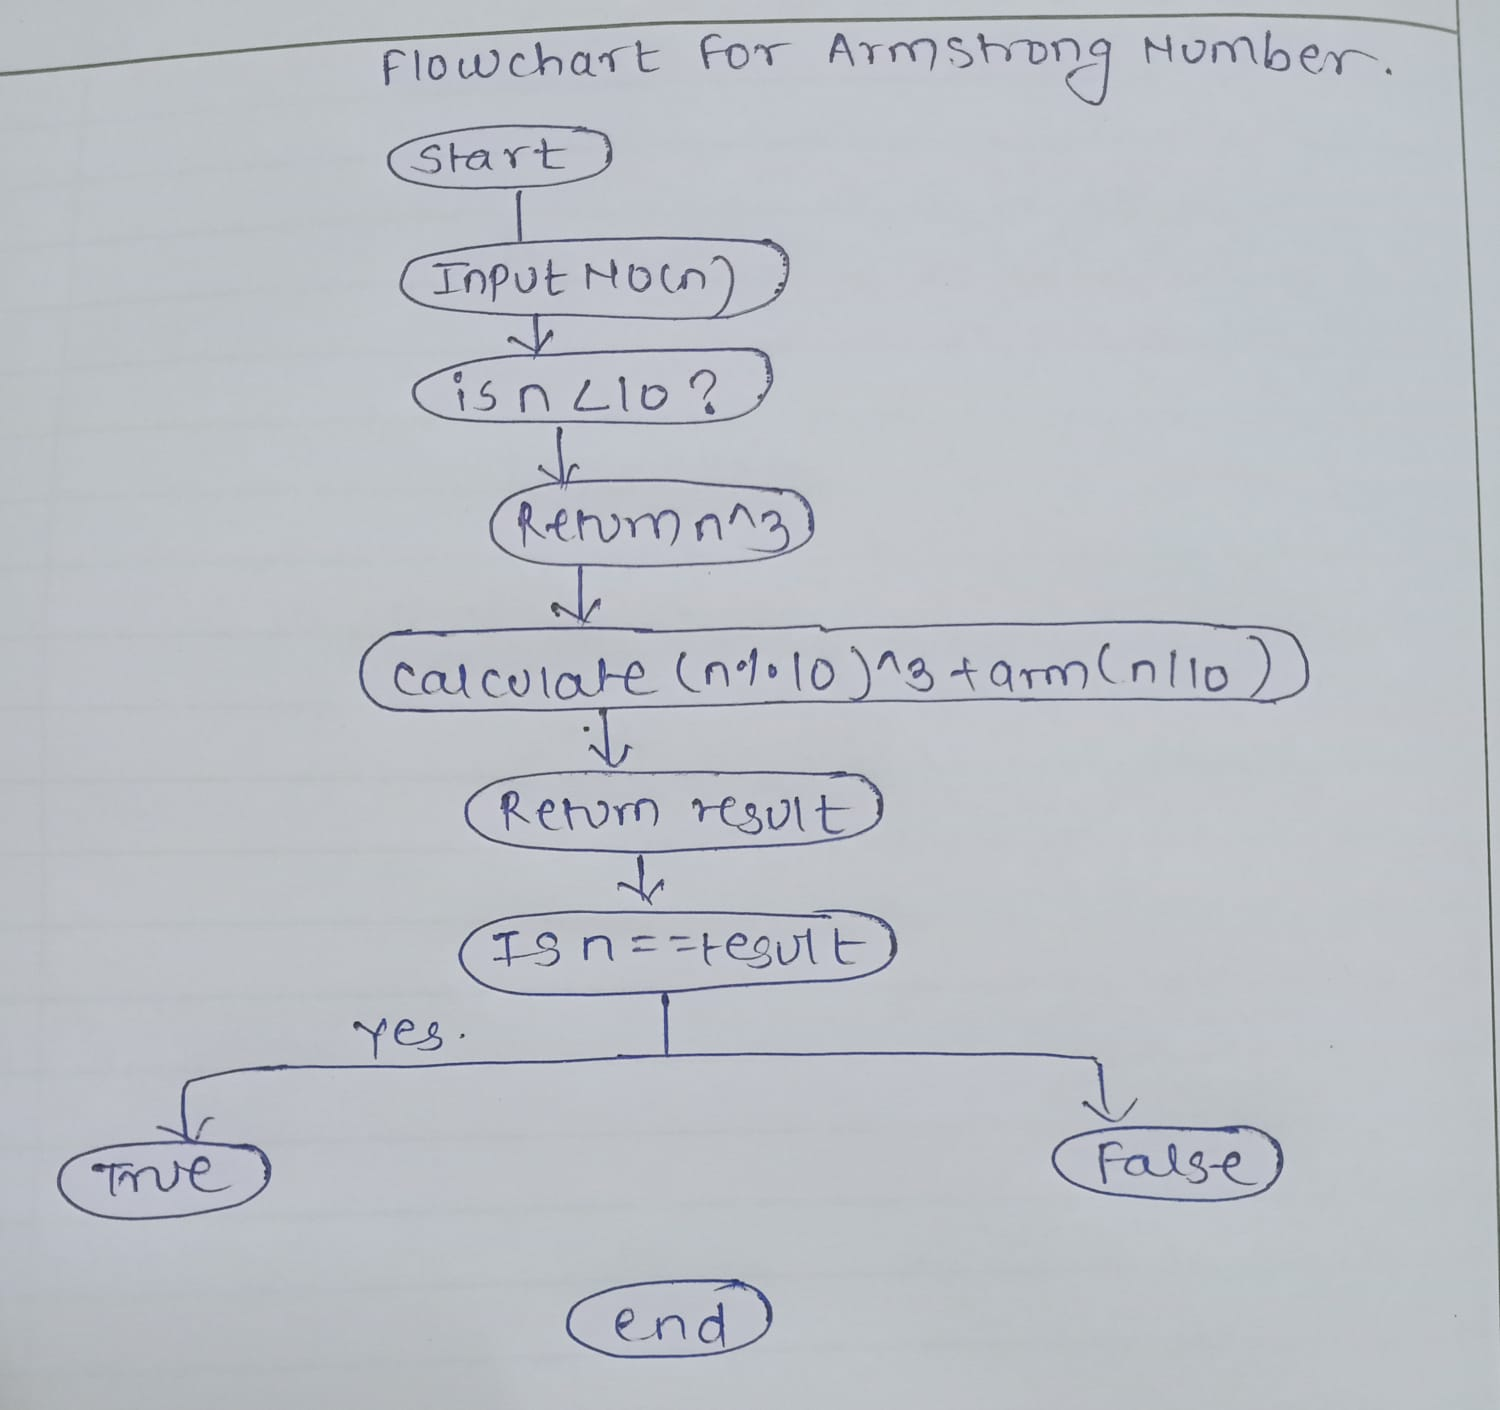 Flowchart For Armstrong Number.
Start
Input No(n)
is n<10?
Return n^3
Calculate (n%10)^3+arm(n//10)
Return result
Is n==result
Yes.
True
False
end